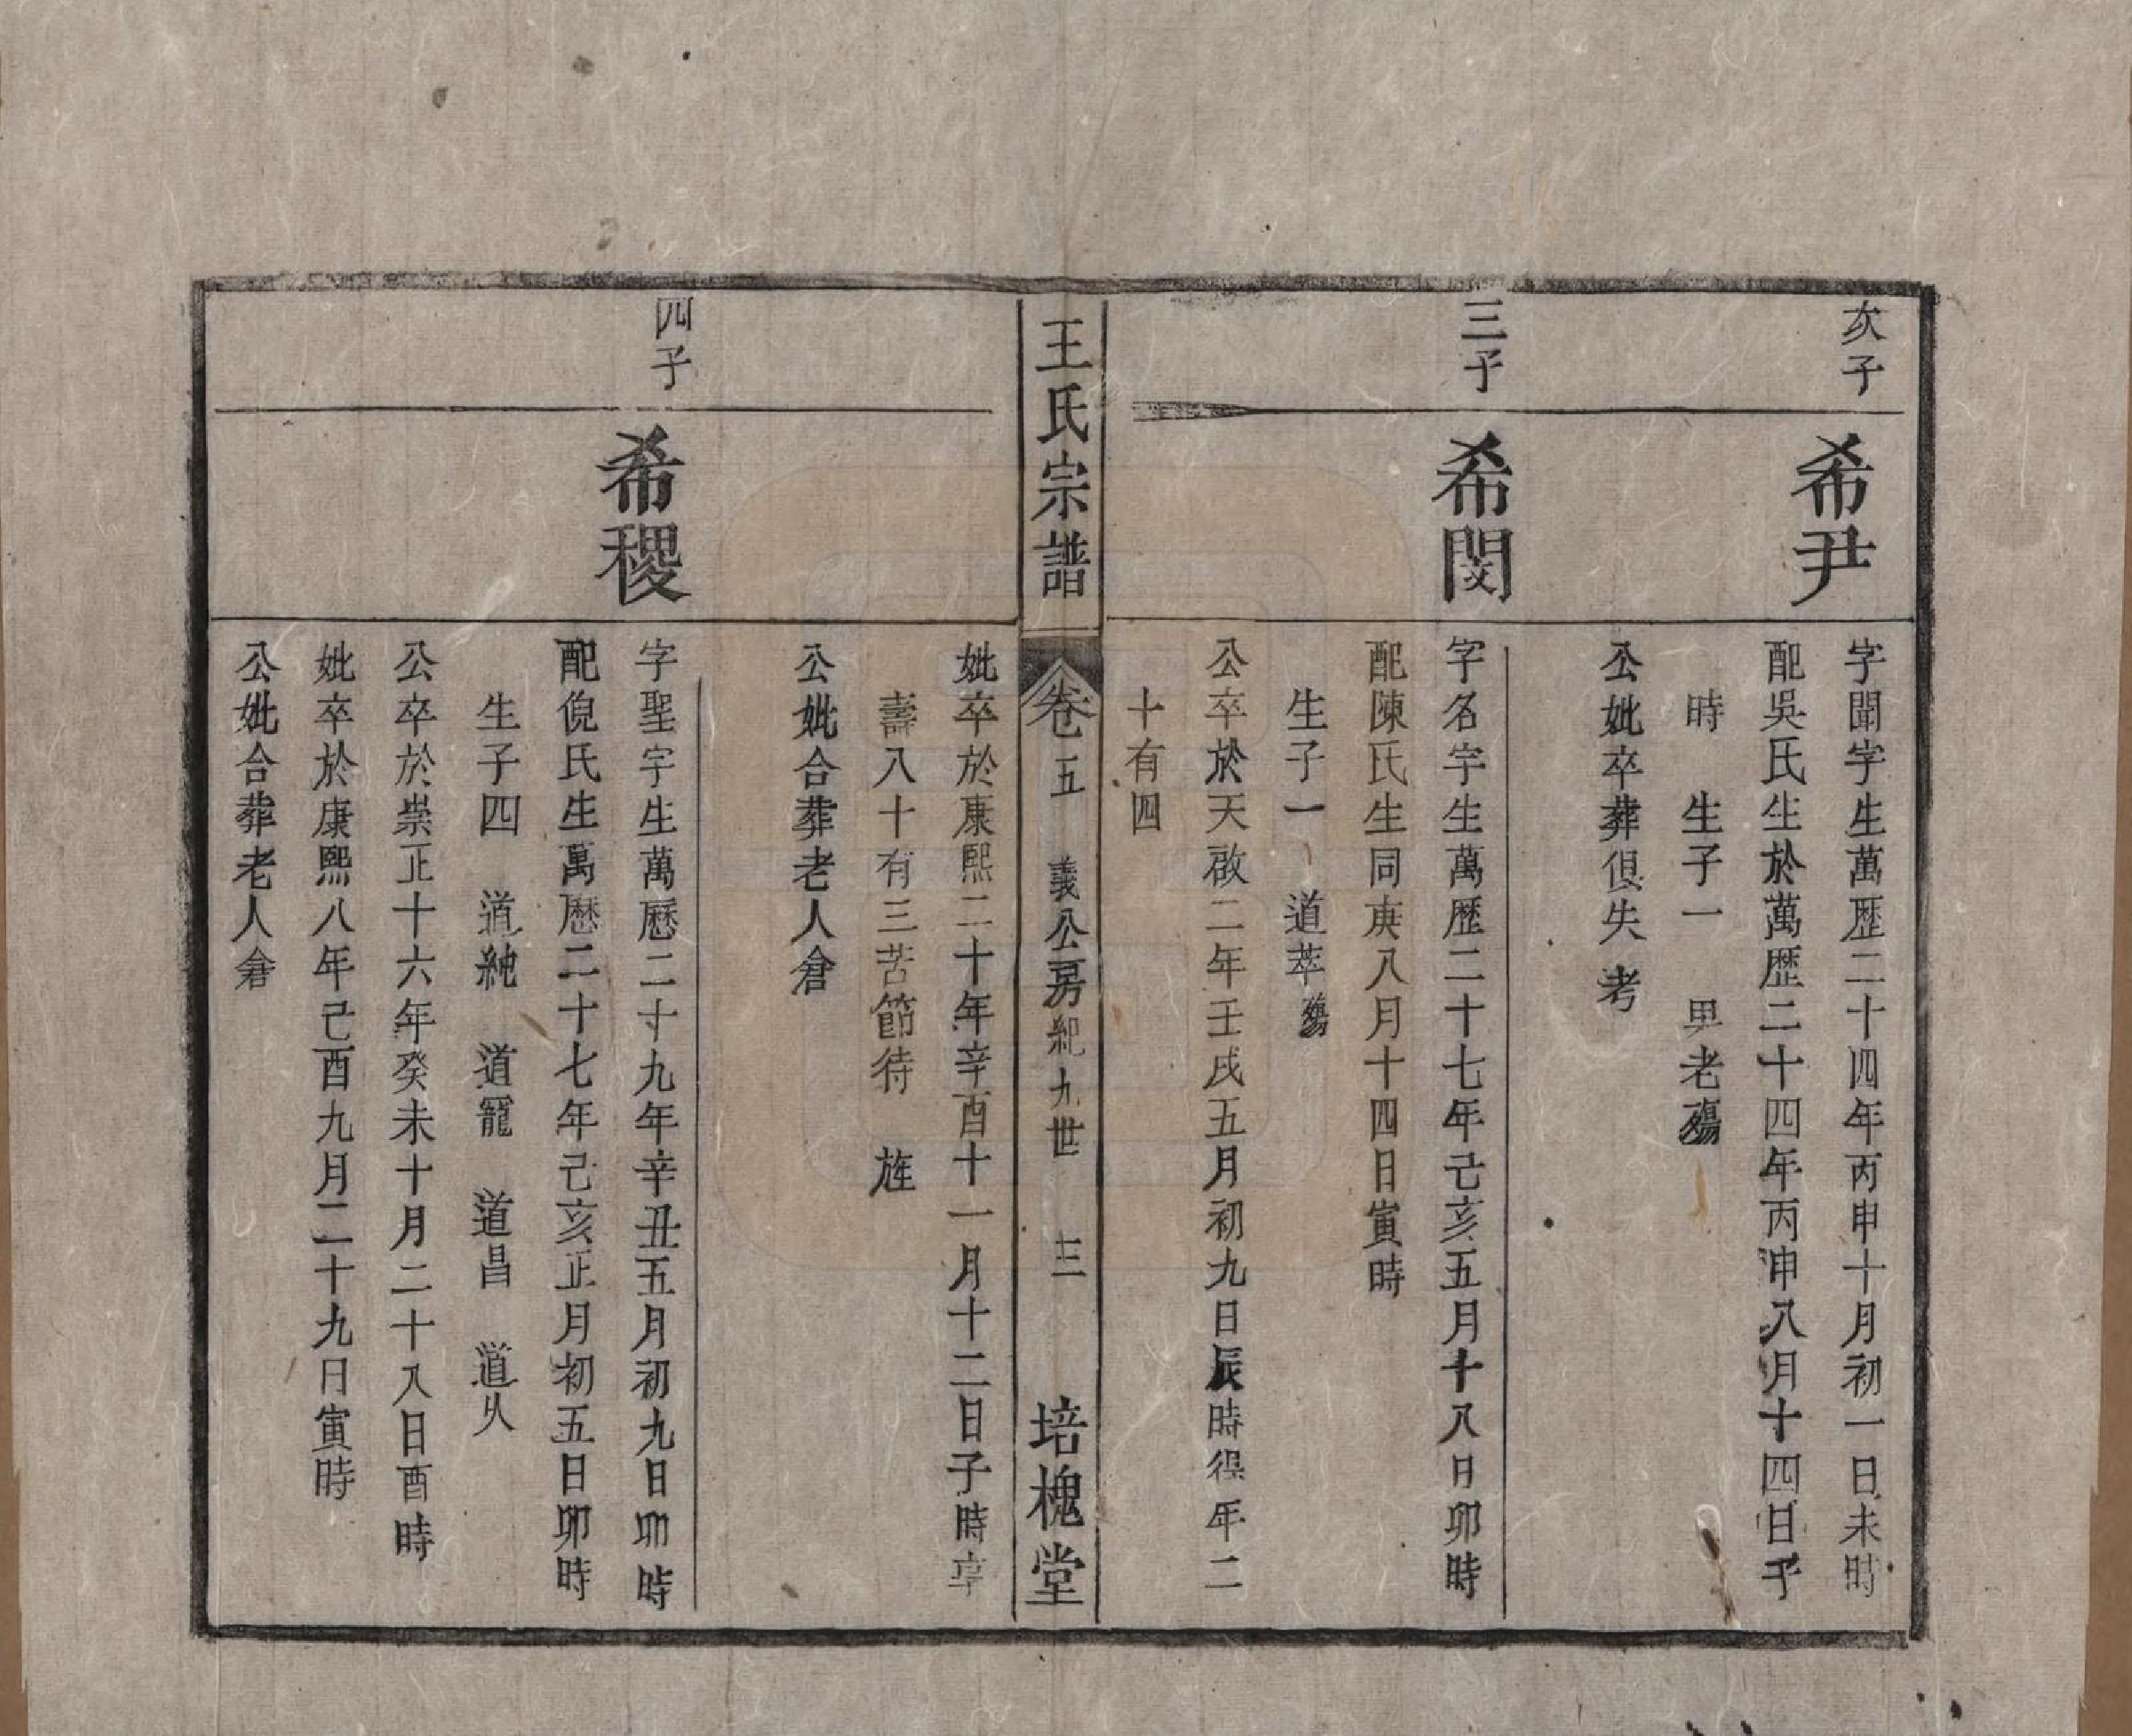 次子
希尹
字聞宇生萬歷二十四年丙申十月初一日未時
配吳氏生於萬歷二十四年丙申八月十四日子
時　生子一　畢老殤
公妣卒葬俱失考
三子
希閔
字名宇生萬歷二十七年己亥五月十八日卯時
配陳氏生同庚八月十四日寅時
生子一　道萃殤
公卒於天啟二年壬戌五月初九日辰時得年二
十有四
王氏宗譜
卷五　義公房紀九世　十三
培槐堂
妣卒於康熙二十年辛酉十一月十二日子時享
壽八十有三苦節待　旌
公妣合葬老人倉
四子
希稷
字聖宇生萬曆二十九年辛丑五月初九日卯時
配倪氏生萬曆二十七年己亥正月初五日卯時
生子四　道純　道寵　道昌　道火
公卒於崇正十六年癸未十月二十八日酉時
妣卒於康熙八年己酉九月二十九日寅時
公妣合葬老人倉